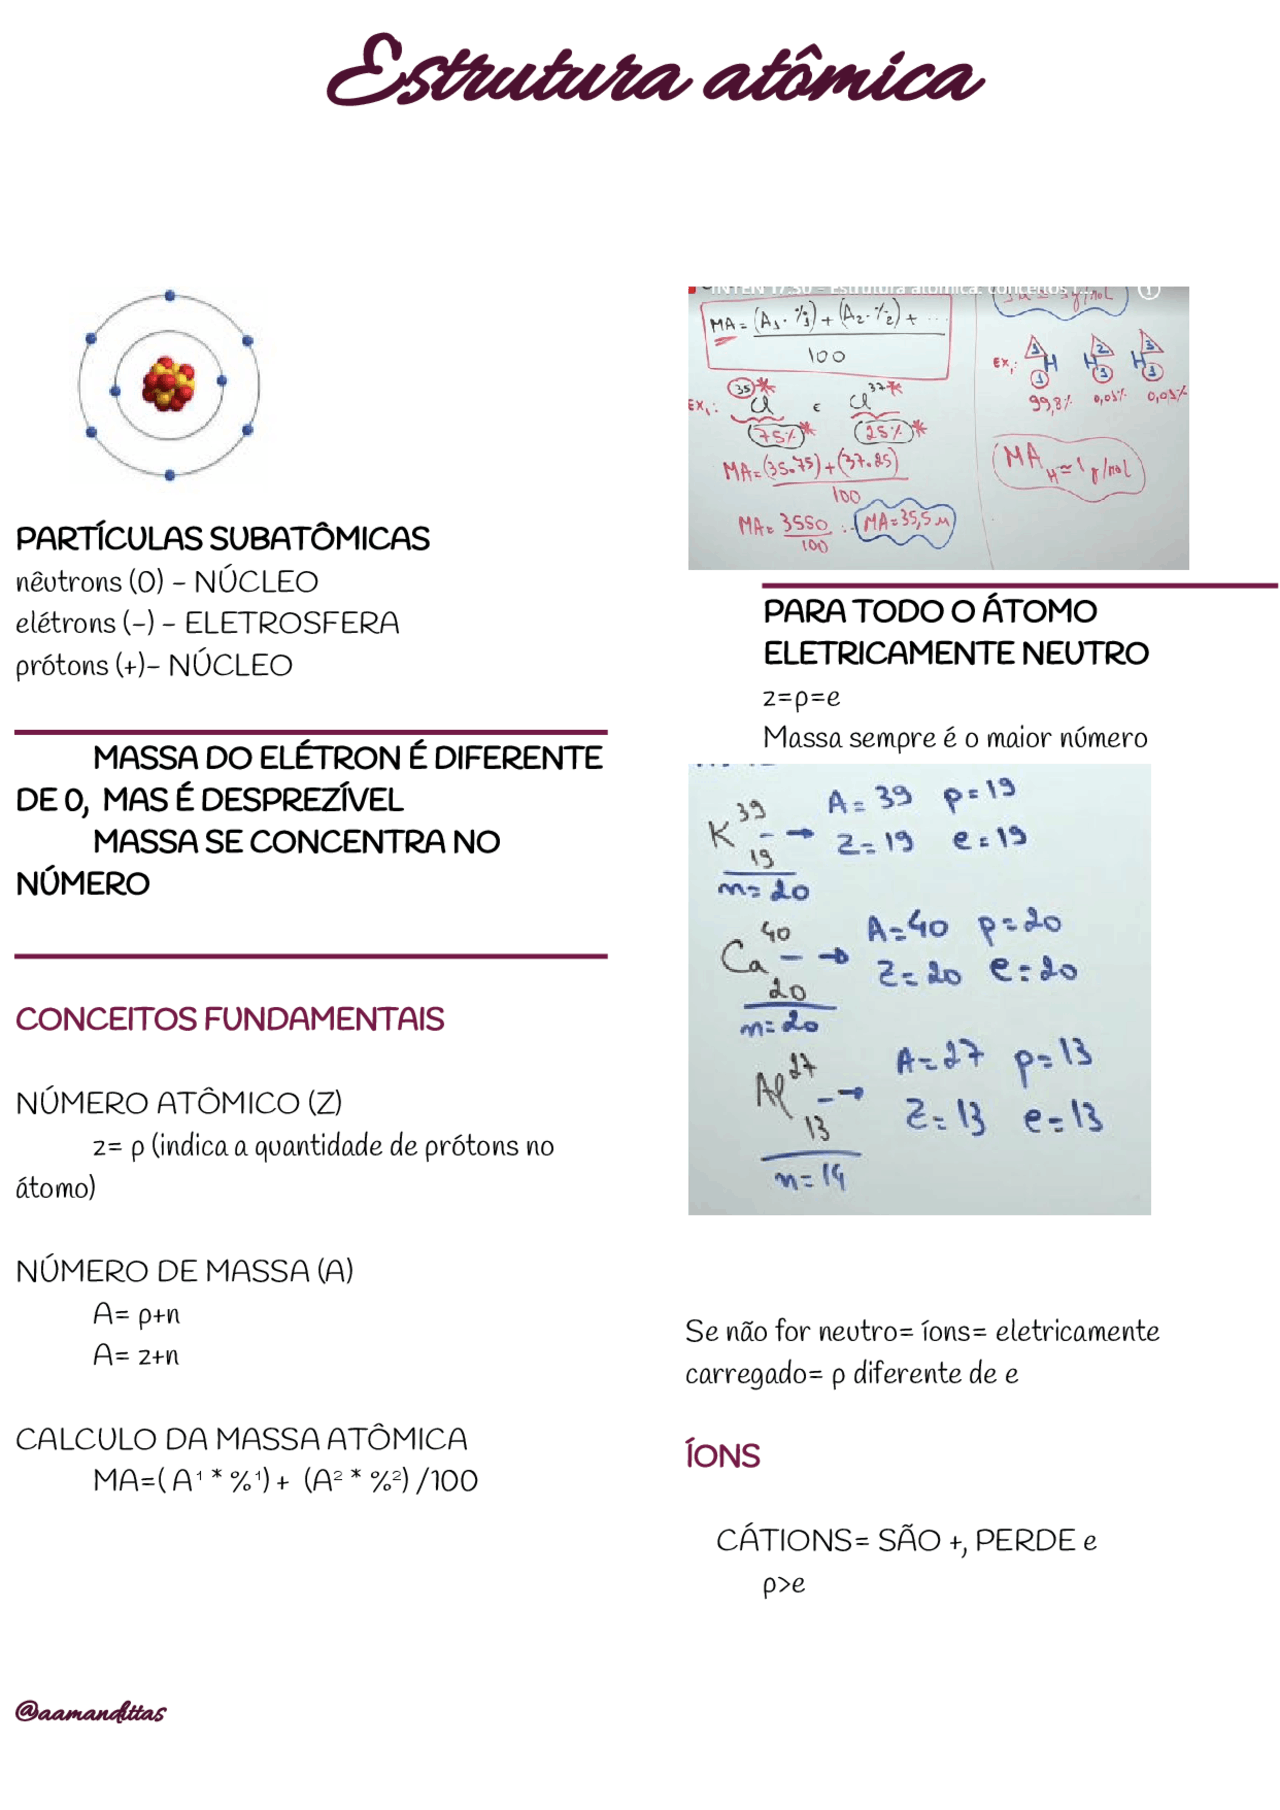 Estrutura atômica
PARTÍCULAS SUBATÔMICAS
nêutrons (0) - NÚCLEO
elétrons (-) - ELETROSFERA
prótons (+)- NÚCLEO
MASSA DO ELÉTRON É DIFERENTE
DE 0, MAS É DESPREZÍVEL
MASSA SE CONCENTRA NO
NÚMERO
CONCEITOS FUNDAMENTAIS
NÚMERO ATÔMICO (Z)
z= p (indica a quantidade de prótons no
átomo)
NÚMERO DE MASSA (A)
A= p+n
A= z+n
CALCULO DA MASSA ATÔMICA
MA=( A¹ * %¹) + (A² * %²) /100
@aamandittas
MA = (A₁ . %₁) + (A₂ . %₂) + ...
100
Ex₁: Cl³⁵ e Cl³⁷
75% 25%
MA = (35.75) + (37.25)
100
MA = 3550 ∴ MA = 35,5 u
100
Ex₁: H H H
1 2 3
1 1 1
99,8%
MA H ≃ 1 g/mol
PARA TODO O ÁTOMO
ELETRICAMENTE NEUTRO
z=p=e
Massa sempre é o maior número
K 39 → A = 39 p = 19
19 Z = 19 e = 19
n = 20
Ca 40 → A = 40 p = 20
20 Z = 20 e = 20
n = 20
Al 27 → A = 27 p = 13
13 Z = 13 e = 13
n = 14
Se não for neutro= íons= eletricamente
carregado= p diferente de e
ÍONS
CÁTIONS= SÃO +, PERDE e
p>e